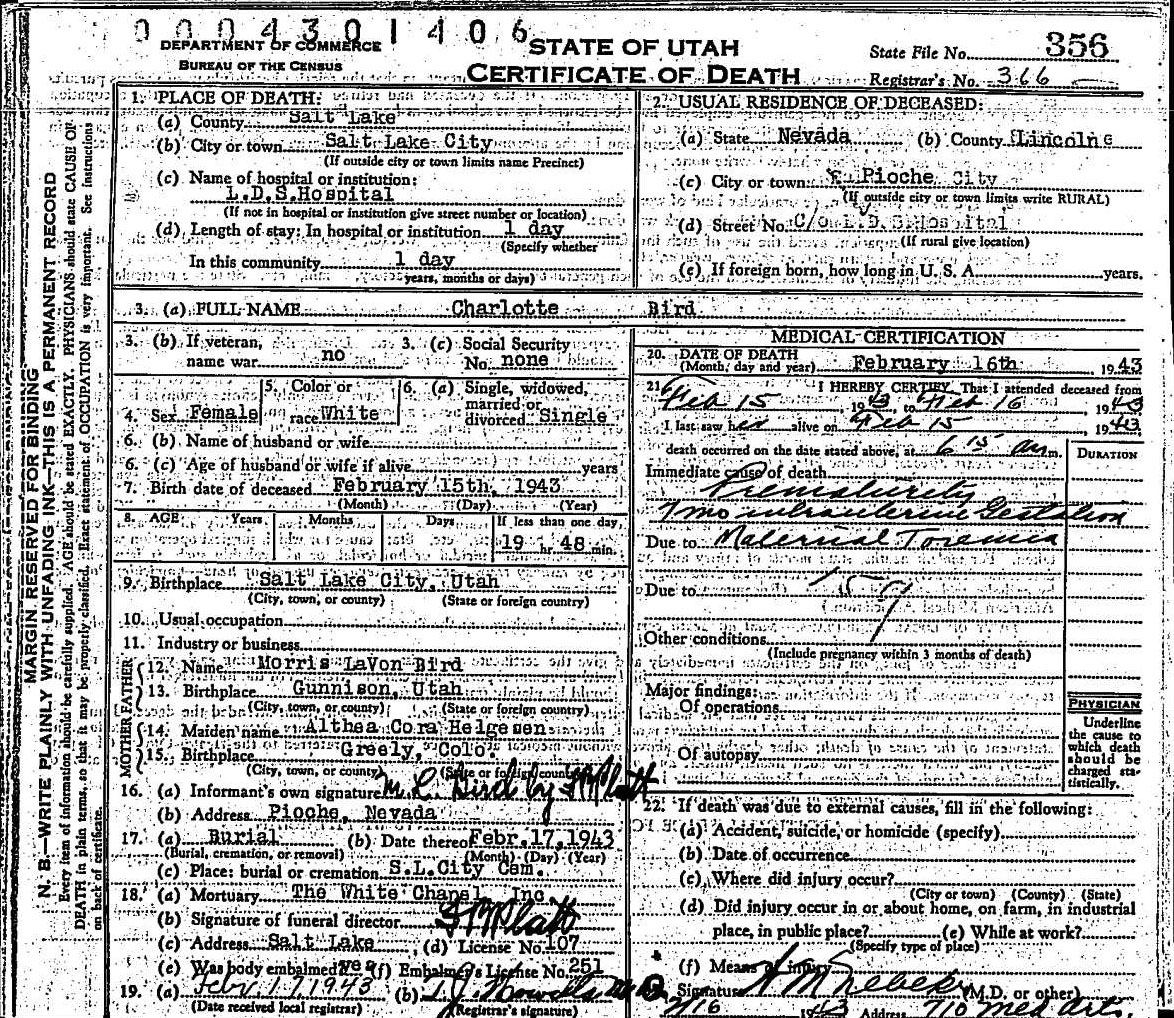 0004301406
DEPARTMENT OF COMMERCE
BUREAU OF THE CENSUS
STATE OF UTAH
CERTIFICATE OF DEATH
State File No. 356
Registrar's No. 366
MARGIN RESERVED FOR BINDING
N. B.—WRITE PLAINLY WITH UNFADING INK—THIS IS A PERMANENT RECORD
Every item of information should be carefully supplied. AGE should be stated EXACTLY. PHYSICIANS should state CAUSE OF
DEATH in plain terms, so that it may be properly classified. Exact statement of OCCUPATION is very important. See instructions
on back of certificate.
1. PLACE OF DEATH:
(a) County Salt Lake
(b) City or town Salt Lake City
(If outside city or town limits name Precinct)
(c) Name of hospital or institution:
L.D.S.Hospital
(If not in hospital or institution give street number or location)
(d) Length of stay: In hospital or institution 1 day
(Specify whether
In this community 1 day
years, months or days)
2. USUAL RESIDENCE OF DECEASED:
(a) State Nevada (b) County Lincoln
(c) City or town Pioche City
(If outside city or town limits write RURAL)
(d) Street No. C/o L.D.S.Hospital
(If rural give location)
(e) If foreign born, how long in U. S. A. years.
3. (a) FULL NAME Charlotte Bird
3. (b) If veteran, name war no
3. (c) Social Security No. none
4. Sex Female
5. Color or race White
6. (a) Single, widowed, married or divorced Single
6. (b) Name of husband or wife
6. (c) Age of husband or wife if alive years
7. Birth date of deceased February 15th, 1943
(Month) (Day) (Year)
8. AGE Years Months Days If less than one day,
19 hr. 48 min.
9. Birthplace Salt Lake City, Utah
(City, town, or county) (State or foreign country)
10. Usual occupation
11. Industry or business
FATHER
12. Name Morris LaVon Bird
13. Birthplace Gunnison, Utah
(City, town, or county) (State or foreign country)
MOTHER
14. Maiden name Althea Cora Helgesen
15. Birthplace Greely, Colo.
(City, town, or county) (State or foreign country)
16. (a) Informant's own signature M. L. Bird by
(b) Address Pioche, Nevada
17. (a) Burial (b) Date thereof Febr.17,1943
(Burial, cremation, or removal) (Month) (Day) (Year)
(c) Place: burial or cremation S.L.City Cem.
18. (a) Mortuary The White Chapel Inc
(b) Signature of funeral director
(c) Address Salt Lake (d) License No. 107
(e) Was body embalmed? yes (f) Embalmer's License No. 251
19. (a) Febr 17 1943 (b) T. J. Howells M.D.
(Date received local registrar) (Registrar's signature)
MEDICAL CERTIFICATION
20. DATE OF DEATH
(Month, day and year) February 16th 1943
21. I HEREBY CERTIFY, That I attended deceased from
Feb 15 1943 to Feb 16 1943
I last saw her alive on Feb 15 1943
death occurred on the date stated above, at 6 15 am.
DURATION
Immediate cause of death
Prematurity
7 mo intrauterine Gestation
Due to Maternal Toxemia
Due to
159
Other conditions
(Include pregnancy within 3 months of death)
Major findings:
Of operations
Of autopsy
PHYSICIAN
Underline
the cause to
which death
should be
charged sta-
tistically.
22. If death was due to external causes, fill in the following:
(a) Accident, suicide, or homicide (specify)
(b) Date of occurrence
(c) Where did injury occur?
(City or town) (County) (State)
(d) Did injury occur in or about home, on farm, in industrial
place, in public place? (e) While at work?
(Specify type of place)
(f) Means of injury
Signature M Nebeker (M.D. or other)
2/16 1943 Address 710 Med Arts.